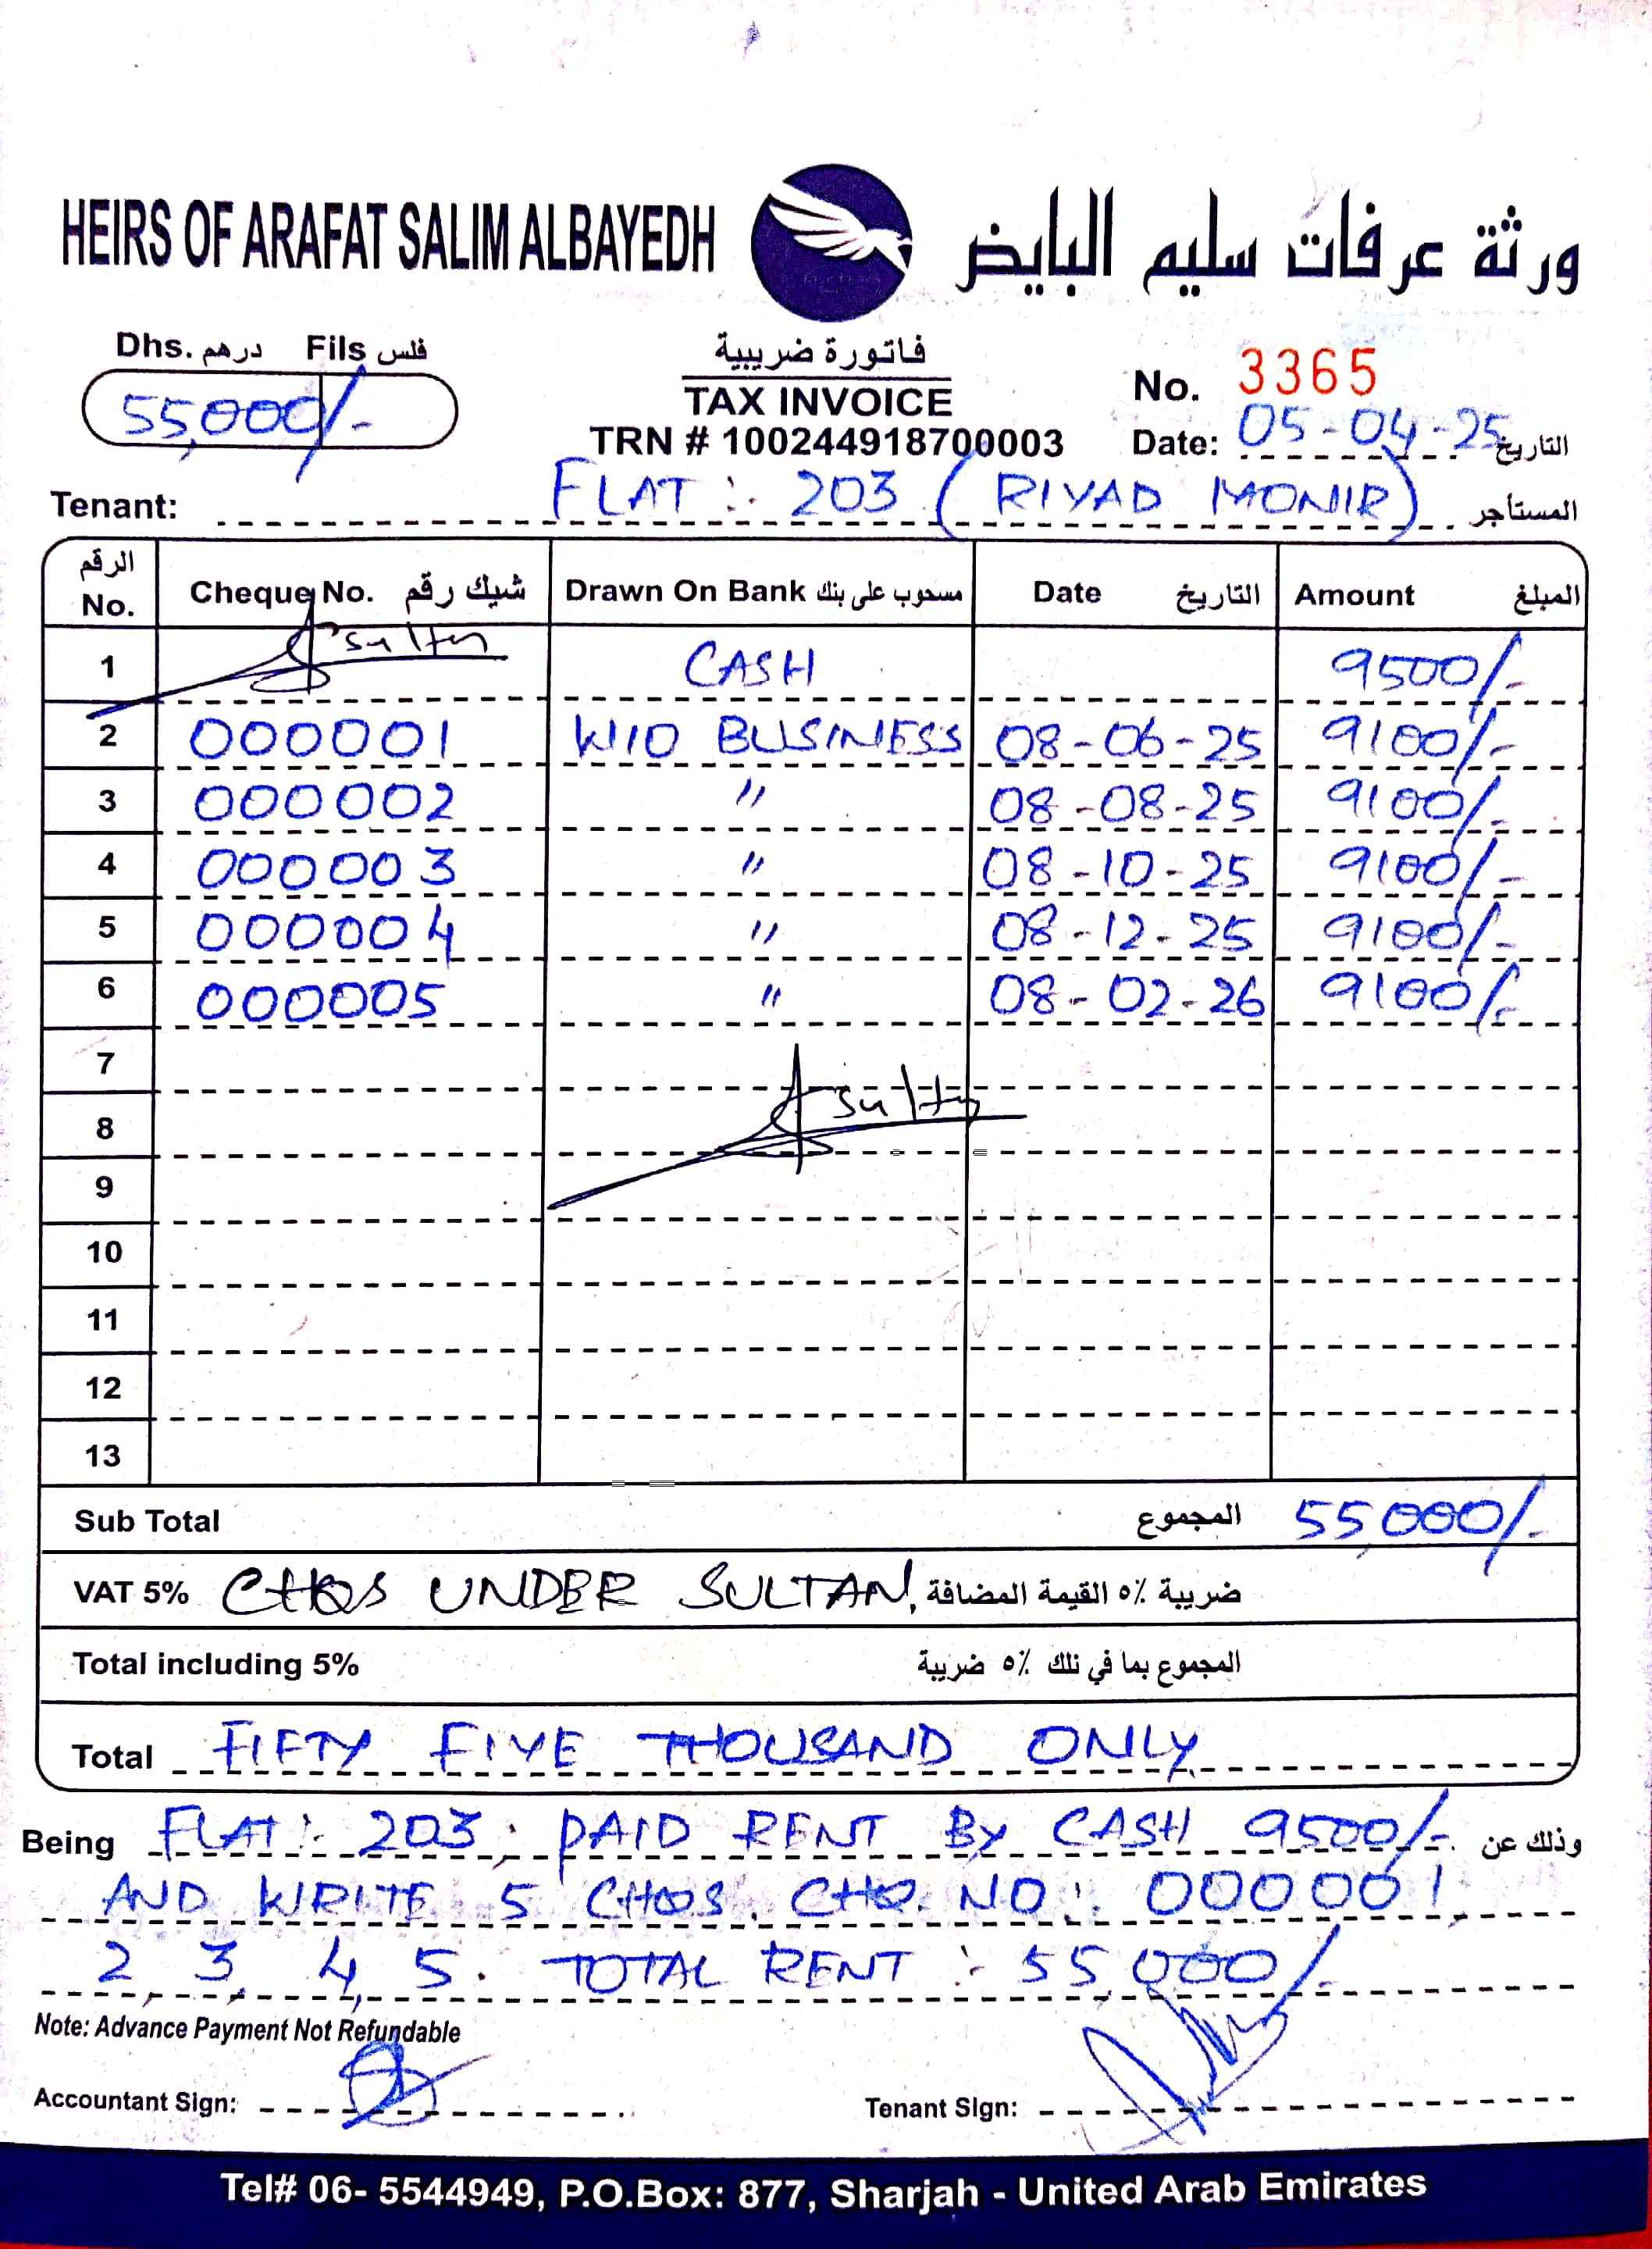 HEIRS OF ARAFAT SALIM ALBAYEDH ورثة عرفات سليم البايض
Dhs. درهم Fils فلس
55,000/-
فاتورة ضريبية
TAX INVOICE
TRN # 100244918700003
No. 3365
Date: 05-04-25 التاريخ
Tenant: FLAT :- 203 (RIYAD MONIR) المستأجر
الرقم No. Cheque No. شيك رقم Drawn On Bank مسحوب على بنك Date التاريخ Amount المبلغ
1 CASH 9500/-
2 000001 WIO BUSINESS 08-06-25 9100/-
3 000002 " 08-08-25 9100/-
4 000003 " 08-10-25 9100/-
5 000004 " 08-12-25 9100/-
6 000005 " 08-02-26 9100/-
7
8
9
10
11
12
13
Sub Total المجموع 55,000/-
VAT 5% CHQS UNDER SULTAN, ضريبة ٥٪ القيمة المضافة
Total including 5% المجموع بما في تلك ٥٪ ضريبة
Total FIFTY FIVE THOUSAND ONLY
Being FLAT:- 203, PAID RENT BY CASH 9500/- وذلك عن
AND WRITE 5 CHQS. CHQ. NO: 000001,
2, 3, 4, 5. TOTAL RENT :- 55,000/-
Note: Advance Payment Not Refundable
Accountant Sign: Tenant Sign:
Tel# 06- 5544949, P.O.Box: 877, Sharjah - United Arab Emirates